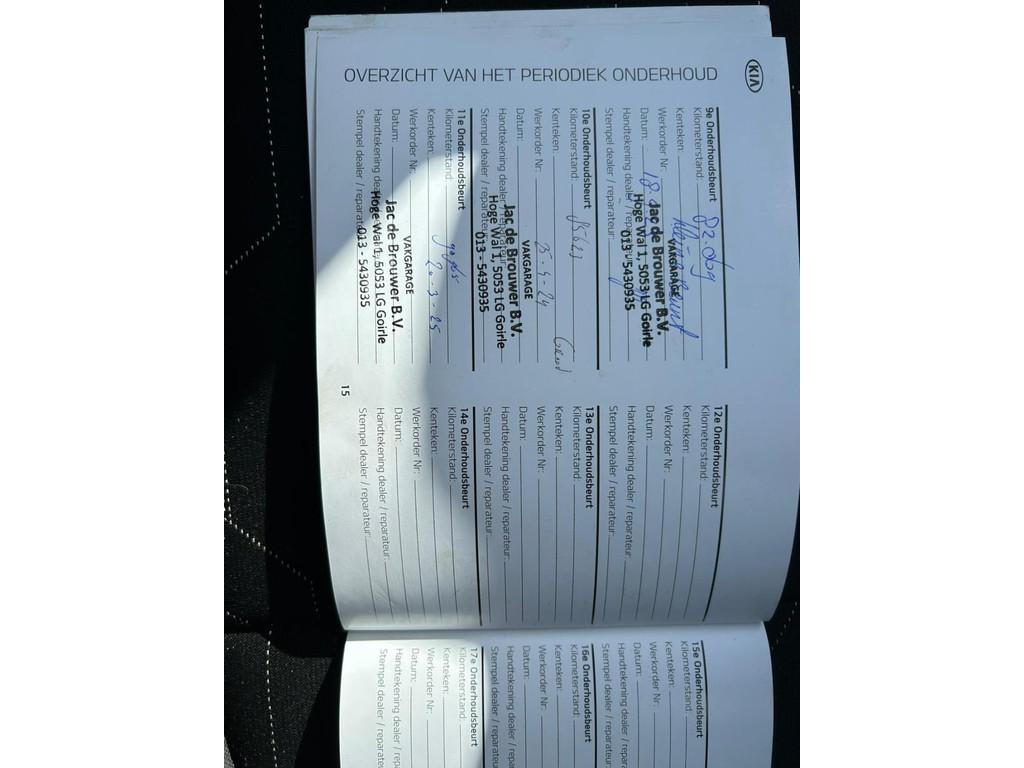 KIA
OVERZICHT VAN HET PERIODIEK ONDERHOUD
9e Onderhoudsbeurt
Kilometerstand: 82.069
Kenteken:
Werkorder Nr:
VAKGARAGE
Datum: 18
Jac de Brouwer B.V.
Handtekening dealer / reparateur:
Hoge Wal 1, 5053 LG Goirle
Stempel dealer / reparateur:
013 - 5430935
10e Onderhoudsbeurt
Kilometerstand: 85623
Kenteken:
Werkorder Nr: 25-4-24
VAKGARAGE
Datum:
Jac de Brouwer B.V.
Handtekening dealer / reparateur:
Hoge Wal 1, 5053 LG Goirle
Stempel dealer / reparateur:
013 - 5430935
11e Onderhoudsbeurt
Kilometerstand:
Kenteken: 20-3-25
Werkorder Nr:
VAKGARAGE
Datum:
Jac de Brouwer B.V.
Handtekening dealer / reparateur:
Hoge Wal 1, 5053 LG Goirle
Stempel dealer / reparateur:
013 - 5430935
15
12e Onderhoudsbeurt
Kilometerstand:
Kenteken:
Werkorder Nr:
Datum:
Handtekening dealer / reparateur:
Stempel dealer / reparateur:
13e Onderhoudsbeurt
Kilometerstand:
Kenteken:
Werkorder Nr:
Datum:
Handtekening dealer / reparateur:
Stempel dealer / reparateur:
14e Onderhoudsbeurt
Kilometerstand:
Kenteken:
Werkorder Nr:
Datum:
Handtekening dealer / reparateur:
Stempel dealer / reparateur:
15e Onderhoudsbeurt
Kilometerstand:
Kenteken:
Werkorder Nr:
Datum:
Handtekening dealer / reparateur:
Stempel dealer / reparateur:
16e Onderhoudsbeurt
Kilometerstand:
Kenteken:
Werkorder Nr:
Datum:
Handtekening dealer / reparateur:
Stempel dealer / reparateur:
17e Onderhoudsbeurt
Kilometerstand:
Kenteken:
Werkorder Nr:
Datum:
Handtekening dealer / reparateur:
Stempel dealer / reparateur: